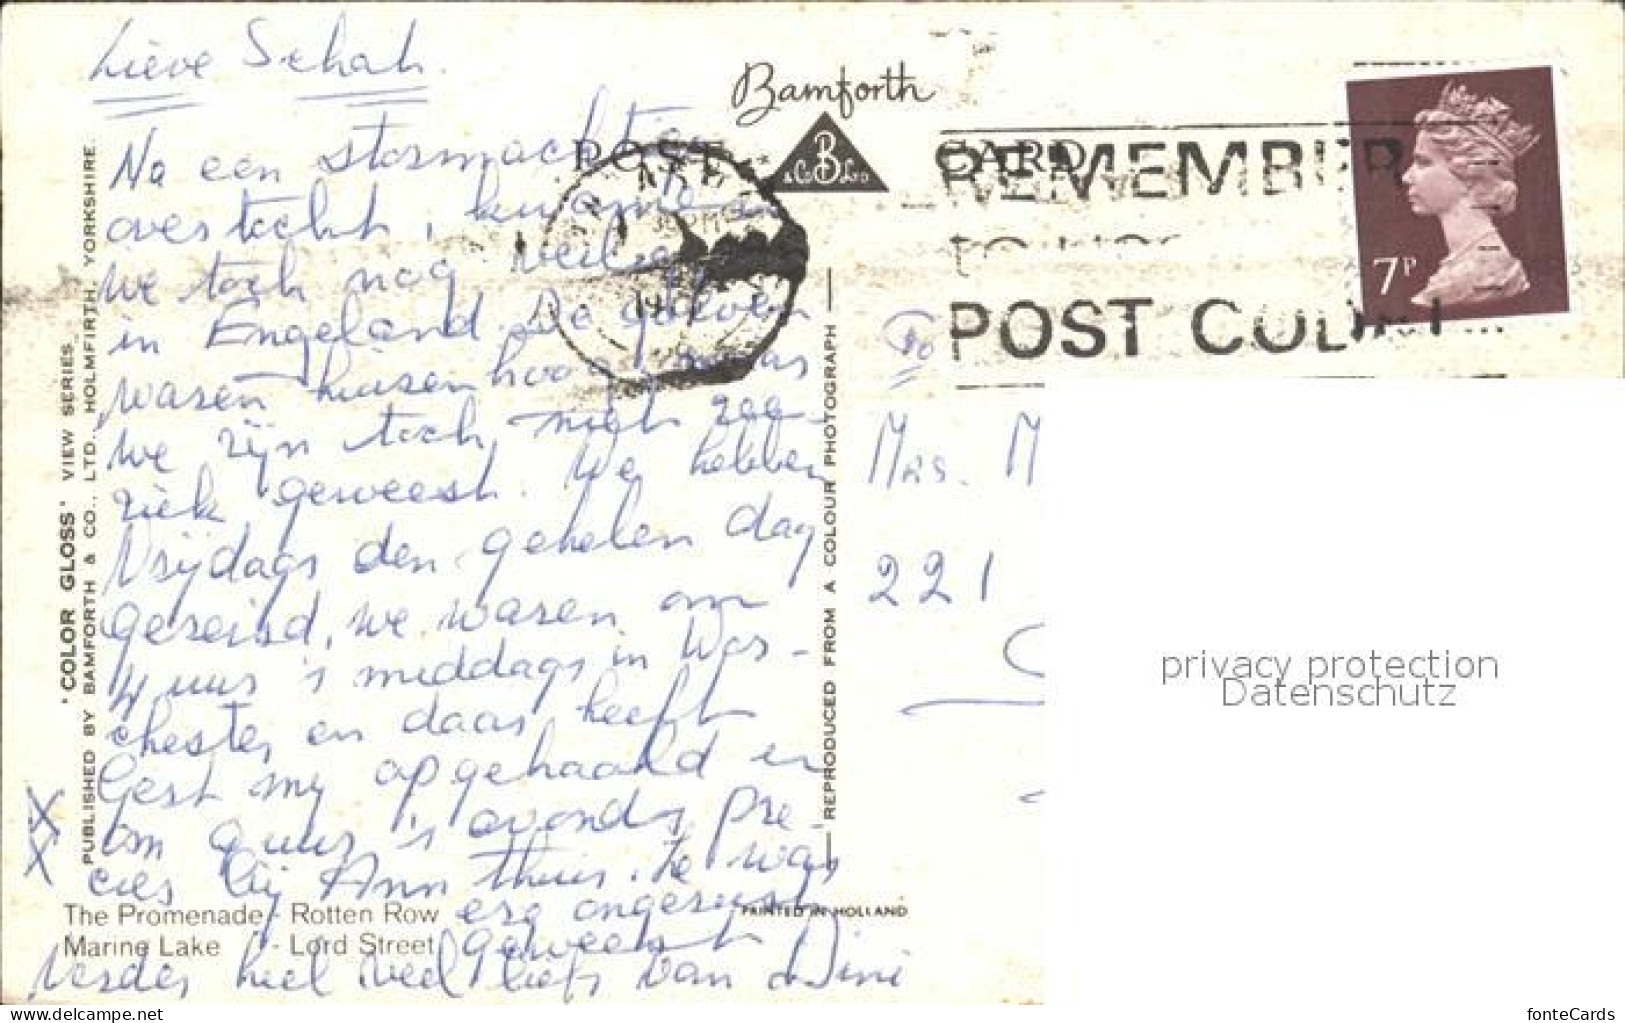 Lieve Schat.
Na een stormachtige
overtocht, kwamen
we toch nog veilig
in Engeland. De golven
waren huizenhoog maar
we zijn toch niet zee-
ziek geweest. We hebben
Vrijdags den gehelen dag
gereisd, we waren om
4 uur 's middags in Wor-
chester en daar heeft
Gert my opgehaald en
om 9 uur 's avonds pre-
cies bij Ann thuis. Ze was
erg ongerust
geweest
Verder heel veel liefs van Dini
X
X
'COLOR GLOSS' VIEW SERIES.
PUBLISHED BY BAMFORTH & CO., LTD., HOLMFIRTH, YORKSHIRE.
The Promenade - Rotten Row
Marine Lake - Lord Street
REPRODUCED FROM A COLOUR PHOTOGRAPH
PRINTED IN HOLLAND
Bamforth
B & Co Ltd
POST CARD
REMEMBER
POST
7P
To
Mrs. M
221
privacy protection
Datenschutz
www.delcampe.net
fonteCards